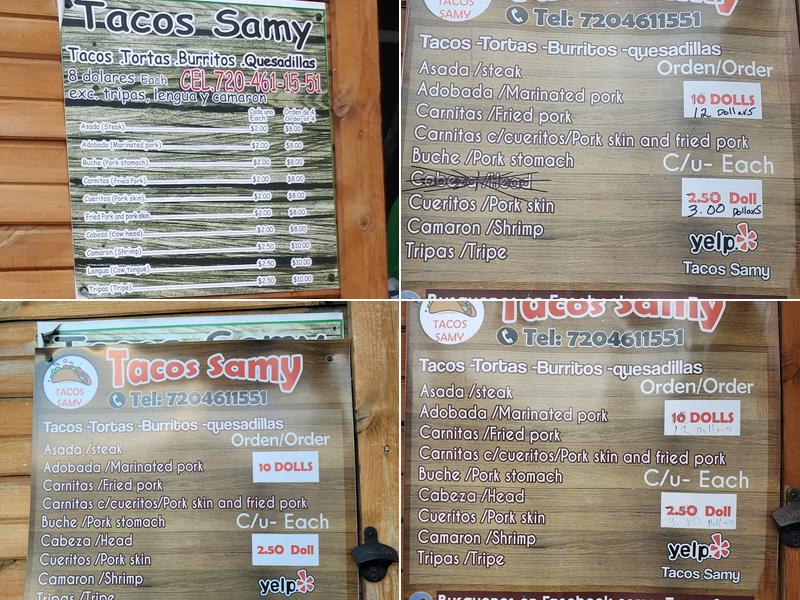 Tacos Samy
Tacos Tortas Burritos Quesadillas
8 dolares Each CEL,720-461-15-51
exc. tripas, lengua y camaron
Cada uno Each Orden de 4
Asada (Steak) $2.00 $8.00
Adobada (Marinated pork) $2.00 $8.00
Buche (Pork stomach) $2.00 $8.00
Carnitas (Fried Pork) $2.00 $8.00
Cueritos (Pork skin) $2.00 $8.00
Fried Pork and pork skin $2.00 $8.00
Cabesa (Cow head) $2.00 $8.00
Camaron (Shrimp) $2.50 $10.00
Lengua (Cow tongue) $2.50 $10.00
Tripas (Tripe) $2.50 $10.00
TACOS
SAMY
Tel: 7204611551
Tacos -Tortas -Burritos -quesadillas
Asada /steak Orden/Order
Adobada /Marinated pork 10 DOLLS
12 Dollars
Carnitas /Fried pork
Carnitas c/cueritos/Pork skin and fried pork
Buche /Pork stomach C/u- Each
Cabeza /Head 2.50 Doll
Cueritos /Pork skin 3.00 Dollars
Camaron /Shrimp yelp
Tripas /Tripe Tacos Samy
Tacos Samy
Tacos Samy
TACOS
SAMY
Tel: 7204611551
Tacos -Tortas -Burritos -quesadillas
Orden/Order
Asada /steak
Adobada /Marinated pork 10 DOLLS
Carnitas /Fried pork
Carnitas c/cueritos/Pork skin and fried pork
Buche /Pork stomach C/u- Each
Cabeza /Head 2.50 Doll
Cueritos /Pork skin
Camaron /Shrimp yelp
Tripas /Tripe
Tacos Samy
TACOS
SAMY
Tel: 7204611551
Tacos -Tortas -Burritos -quesadillas
Orden/Order
Asada /steak
Adobada /Marinated pork 10 DOLLS
12 Dollars
Carnitas /Fried pork
Carnitas c/cueritos/Pork skin and fried pork
Buche /Pork stomach C/u- Each
Cabeza /Head 2.50 Doll
Cueritos /Pork skin 3.00 Dollars
Camaron /Shrimp yelp
Tripas /Tripe Tacos Samy